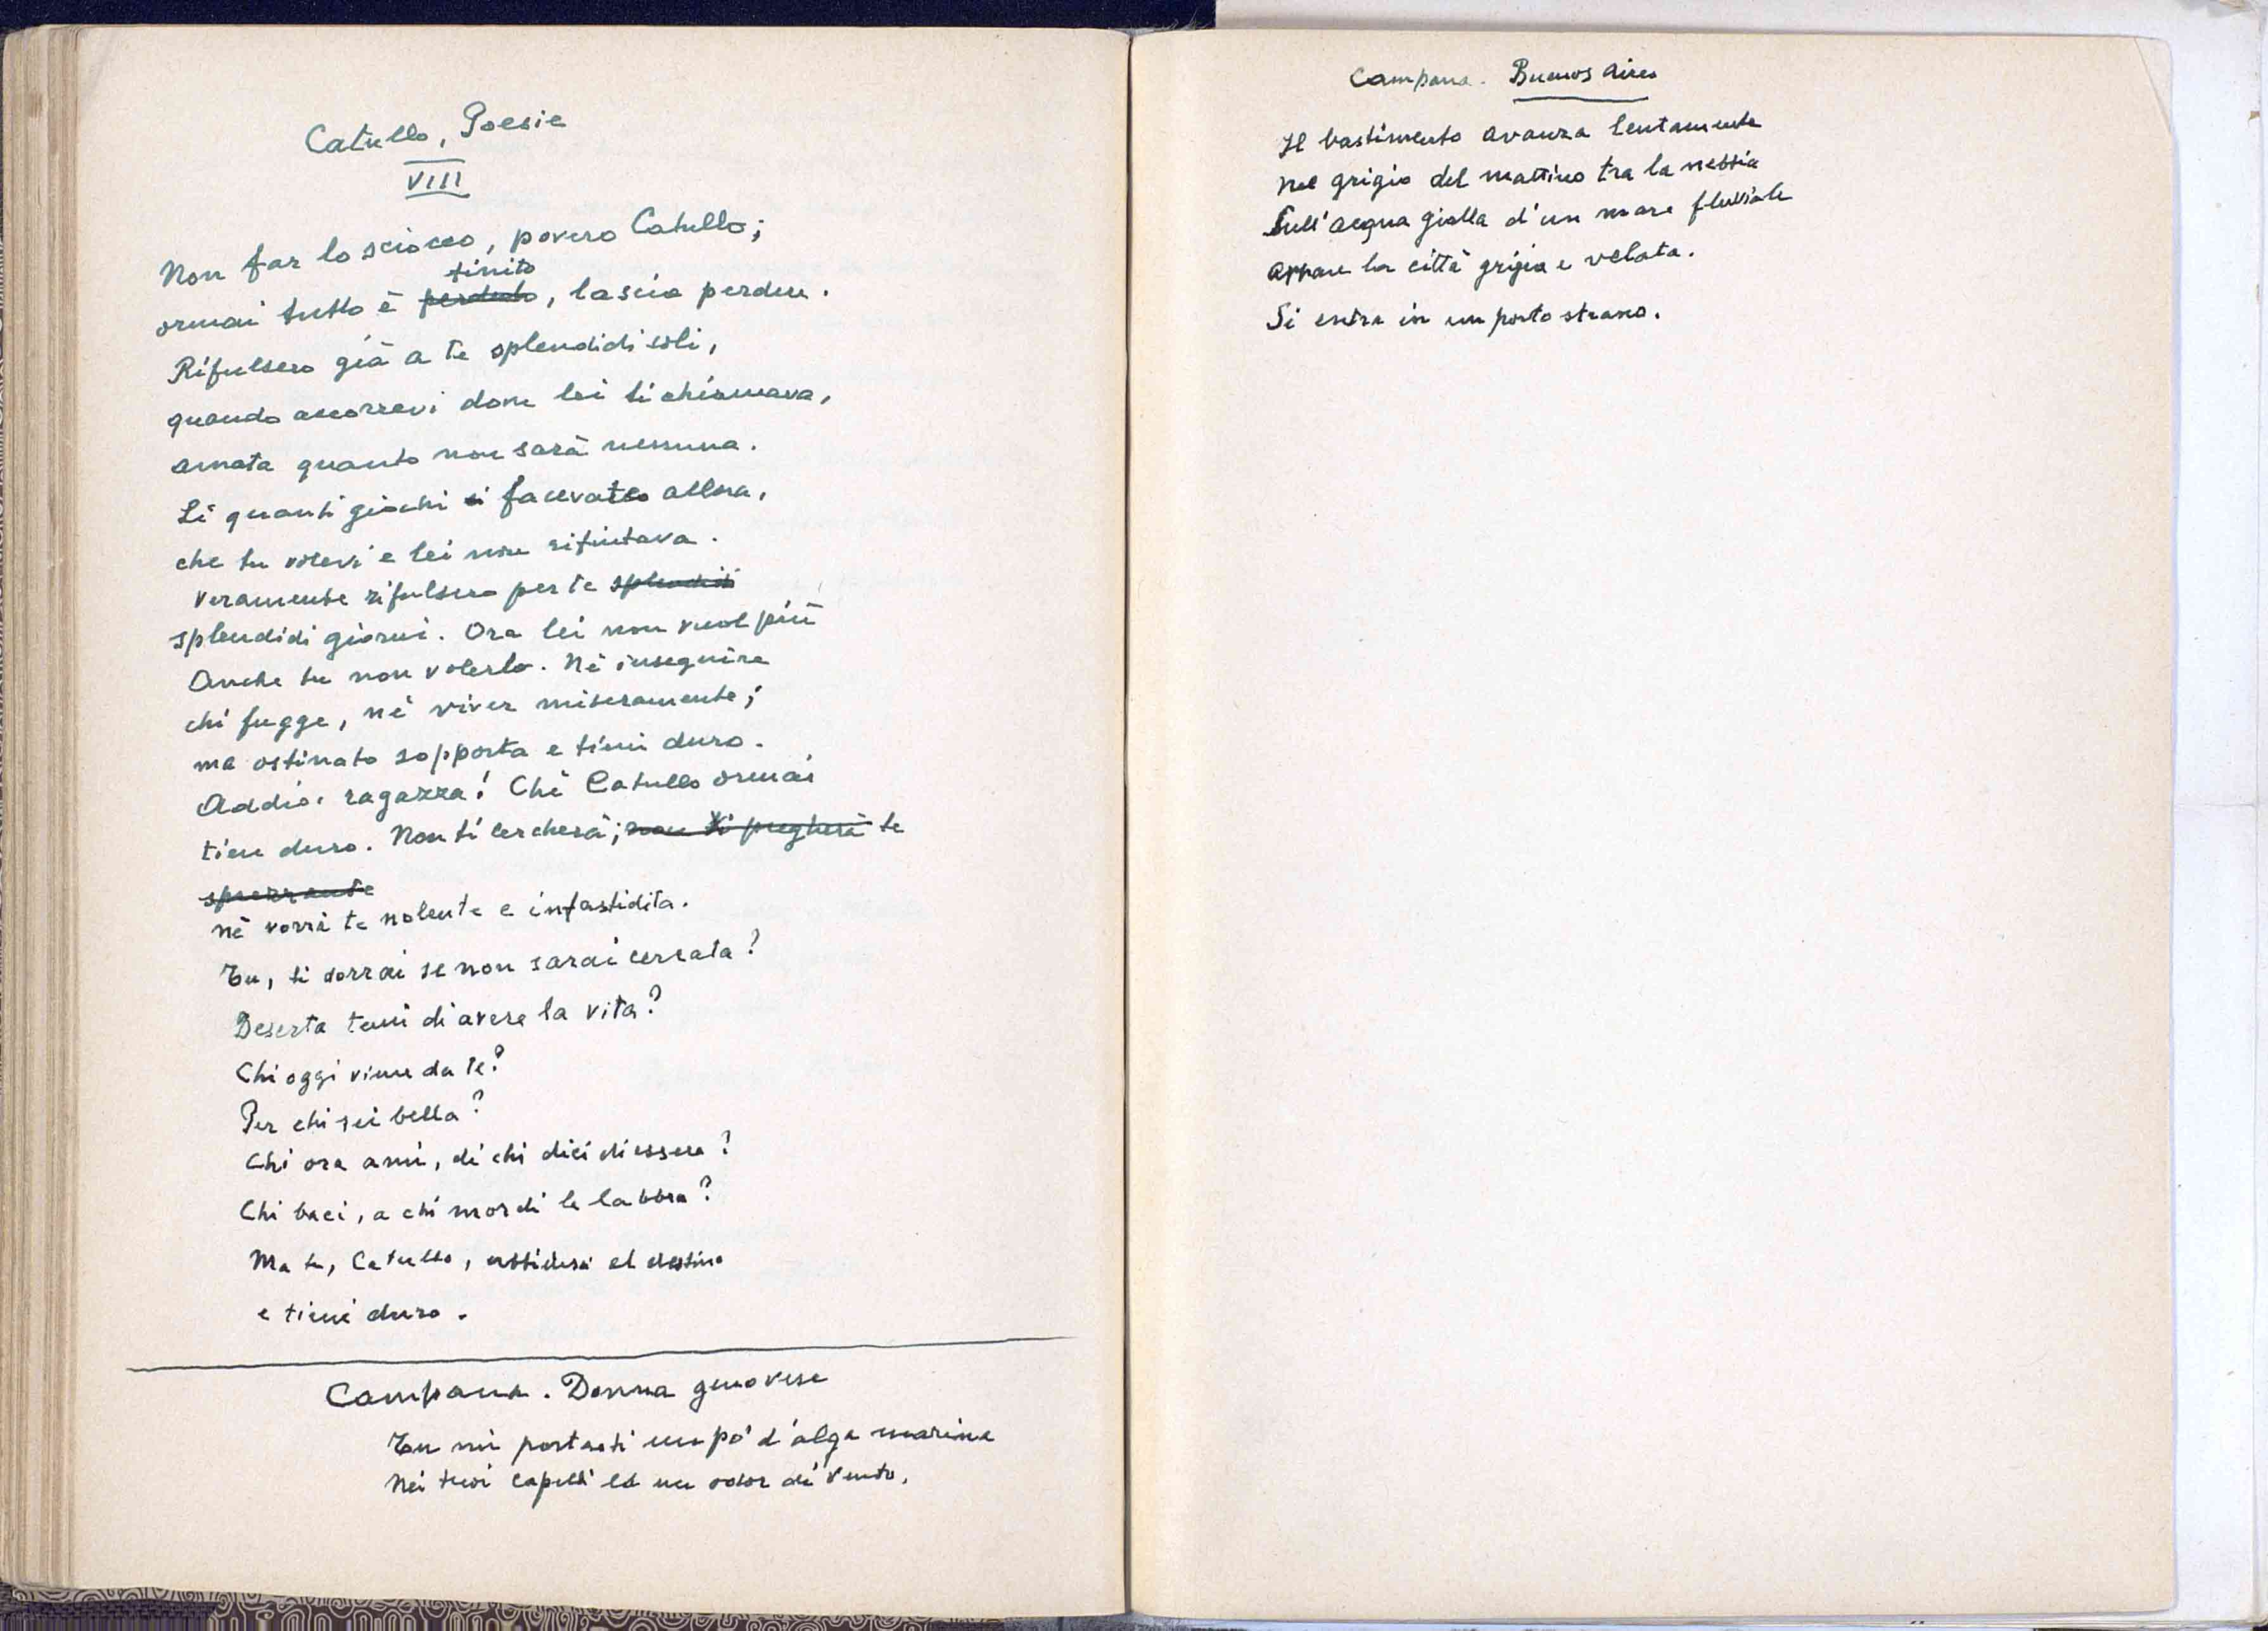 Catullo, Poesie
VIII
Non far lo sciocco, povero Catullo;
finito
ormai tutto è perduto, lascia perdere.
Rifulsero già a te splendidi soli,
quando accorrevi dove lei ti chiamava,
amata quanto non sarà nessuna.
Lì quanti giochi si facevate allora,
che tu volevi e lei non rifiutava.
Veramente rifulsero per te splendidi
splendidi giorni. Ora lei non vuol più
Anche tu non volerlo. Né inseguire
chi fugge, né viver miseramente;
ma ostinato sopporta e tieni duro.
Addio, ragazza! Chè Catullo ormai
tien duro. Non ti cercherà; non ti pregherà te
sprezzante
né vorrà te nolente e infastidita.
Tu, ti dorrai se non sarai cercata?
Deserta temi di avere la vita?
Chi oggi viene da te?
Per chi sei bella?
Chi ora ami, di chi dici di essere?
Chi baci, a chi mordi le labbra?
Ma tu, Catullo, al destino
e tieni duro.
Campana. Donna genovese
Tu mi portasti un po' d'alga marina
Nei tuoi capelli ed un odor di vento,
Campana. Buenos Aires
Il bastimento avanza lentamente
Nel grigio del mattino tra la nebbia
Sull'acqua gialla d'un mare fluviale
Appare la città grigia e velata.
Si entra in un porto strano.